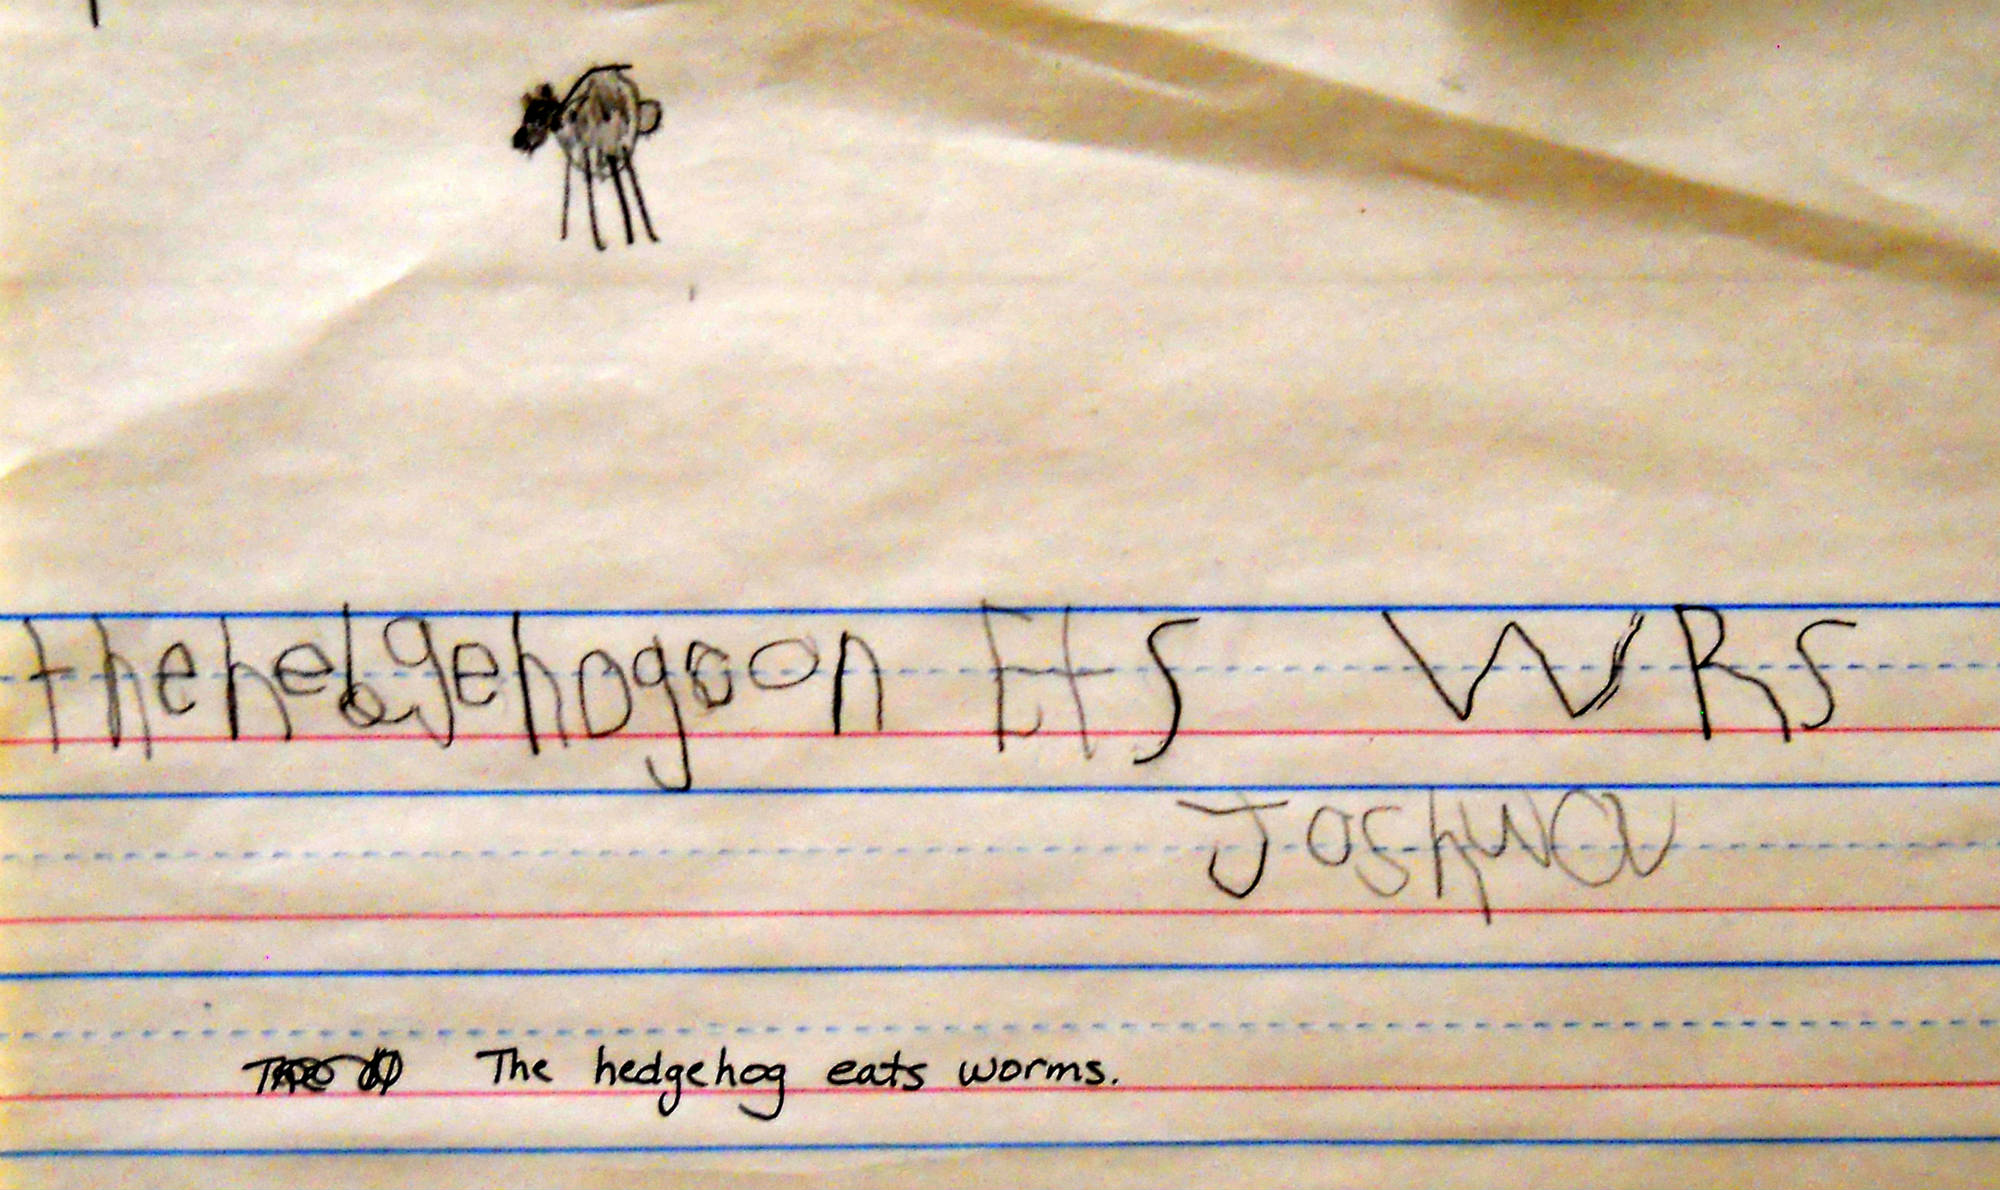 thehedgehogoon Ets WRS
Joshua
The hedgehog eats worms.